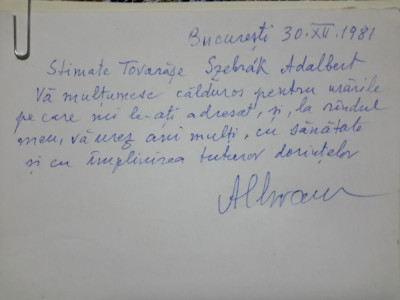 București 30.XII.1981
Stimate Tovarășe Szebrák Adalbert
Vă mulțumesc călduros pentru urările
pe care mi le-ați adresat, și, la rândul
meu, vă urez ani mulți, cu sănătate
și cu împlinirea tuturor dorințelor